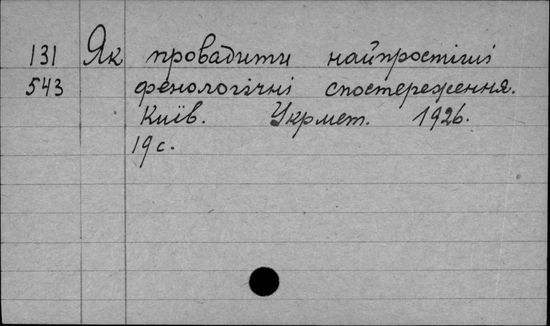 131 Як провадити найпростіші
543 фенологічні спостереження.
Київ. Укрмет. 1926.
19 с.